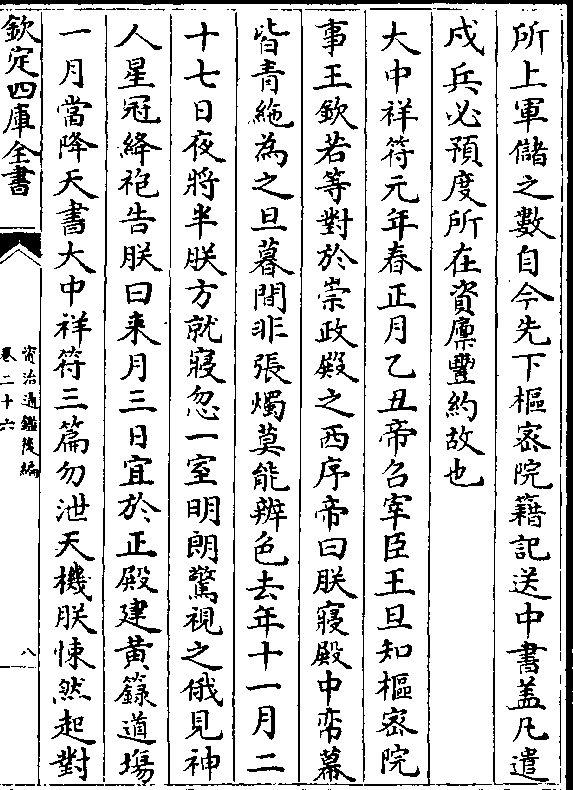 所上軍儲之數自今先下樞宻院籍記送中書盖凡遣
戍兵必預度所在資廪豐約故也
大中祥符元年春正月乙丑帝召宰臣王旦知樞宻院
事王欽若等對於崇政殿之西序帝曰朕寢殿中帟幕
皆青絁為之旦暮間非張燭莫能辨色去年十一月二
十七日夜將半朕方就寢忽一室明朗驚視之俄見神
人星冠絳袍告朕曰来月三日宜於正殿建黄籙道塲
一月當降天書大中祥符三篇勿泄天機朕悚然起對
欽定四庫全書
資治通鑑後編
卷二十六
八